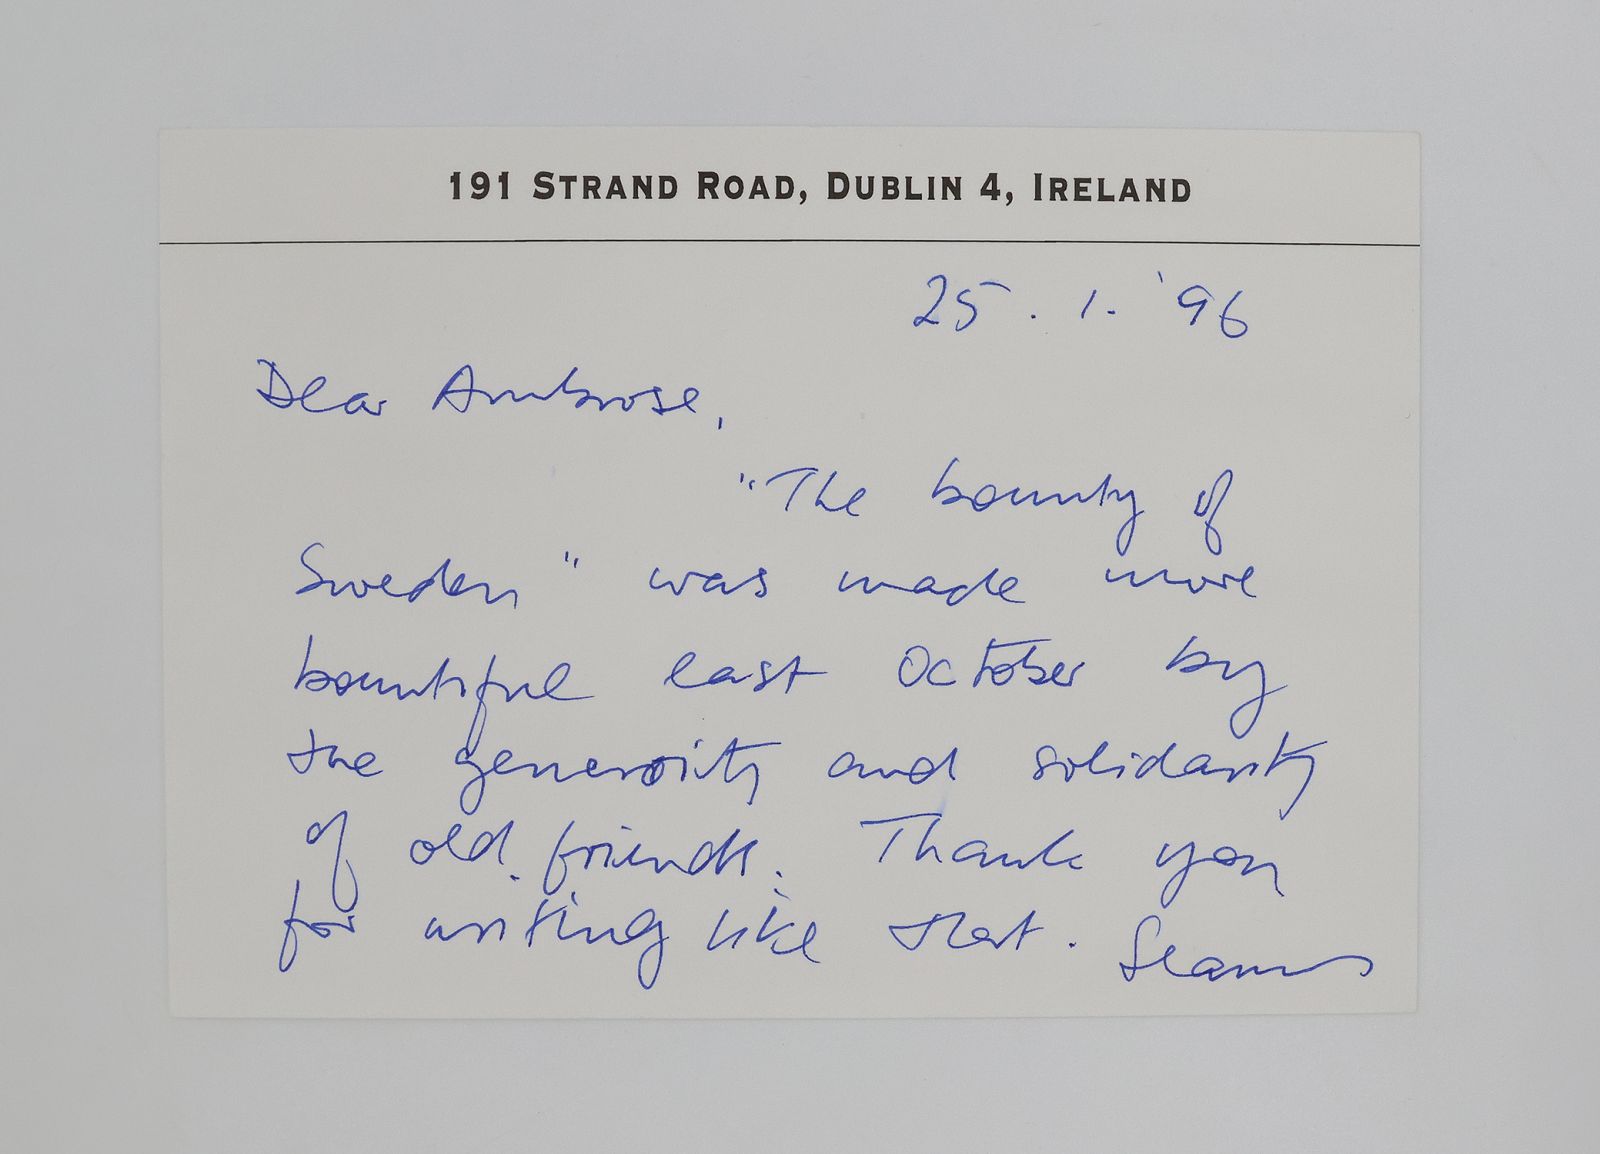 191 STRAND ROAD, DUBLIN 4, IRELAND
25.1.'96
Dear Ambrose,
"The bounty of
Sweden" was made more
bountiful last October by
the generosity and solidarity
of old friends. Thank you
for writing like that. Seamus